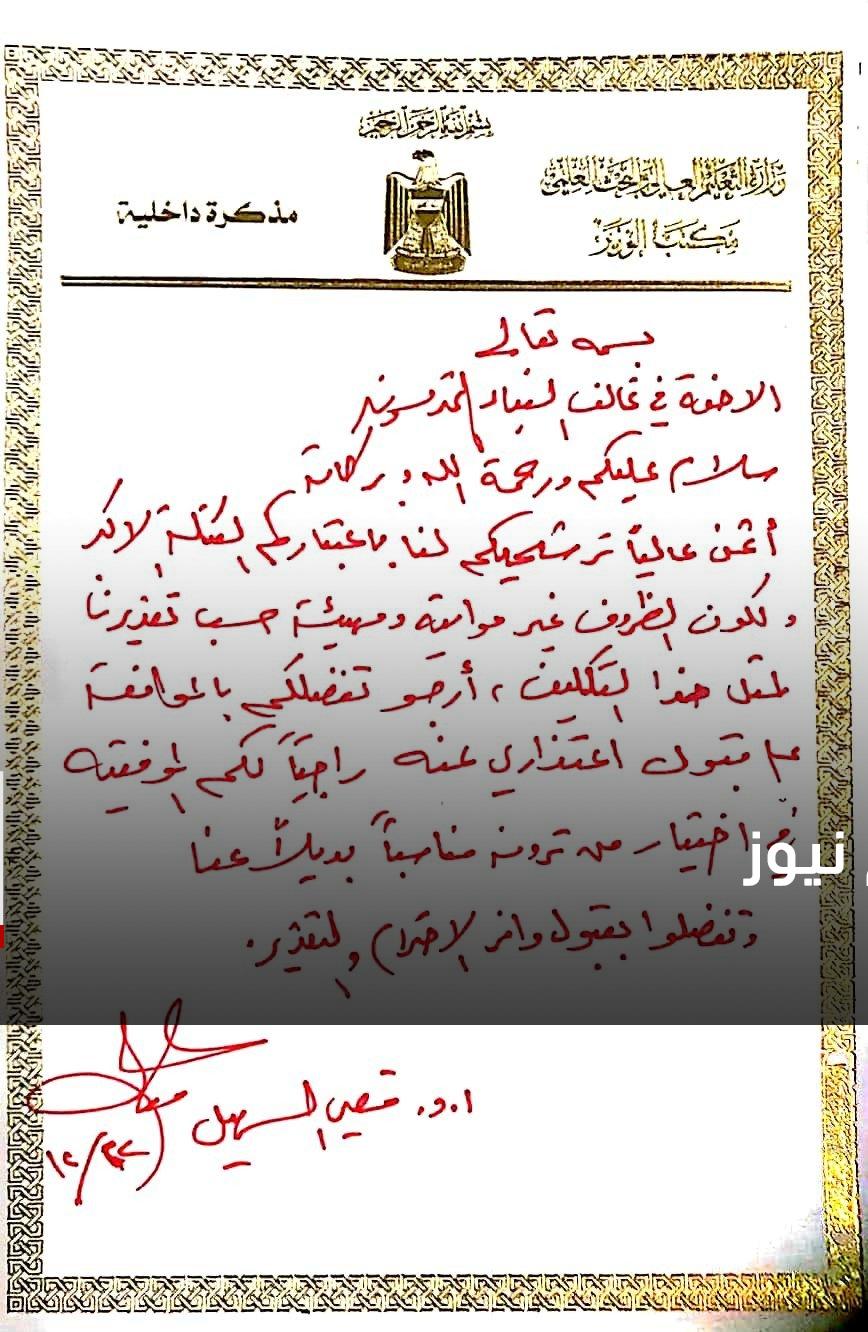 بسم الله الرحمن الرحيم
وزارة التعليم العالي والبحث العلمي
مكتب الوزير
مذكرة داخلية
بسمه تعالى
الاخوة في تحالف البناء المحترمون
سلام عليكم ورحمة الله وبركاته
أثمن عالياً ترشيحكم لنا باعتباركم الكتلة الاكبر
ولكون الظروف غير مواتية ومهيئة حسب تقديرنا
لمثل هذا التكليف، أرجو تفضلكم بالموافقة
على قبول اعتذاري عنه راجياً لكم الموفقية
في اختيار من ترونه مناسباً بديلاً عنا
وتفضلوا بقبول وافر الاحترام والتقدير.
ا.د. قصي السهيل
نيوز